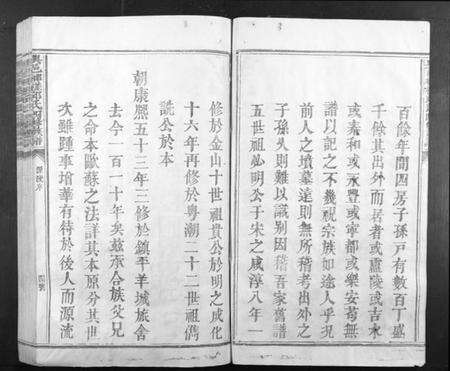 百餘年間四房子孫戶有數百丁盛
千餘其出外而居者或廬陵或吉水
或泰和或永豐或寧都或樂安苟無
譜以記之不幾視宗族如途人乎況
前人之墳墓遠則無所稽考出外之
子孫久則難以識別因稽吾家舊譜
五世祖必明公于宋之咸淳八年一
修於金山十世祖貴公於明之成化
十六年再修於粵潮二十二世祖儁
詵公於本
朝康熙五十三年三修於鎮平羊城旅舍
去今一百一十年矣茲承合族父兄
之命本歐蘇之法詳其本原分其世
次雖踵事增華有待於後人而源流